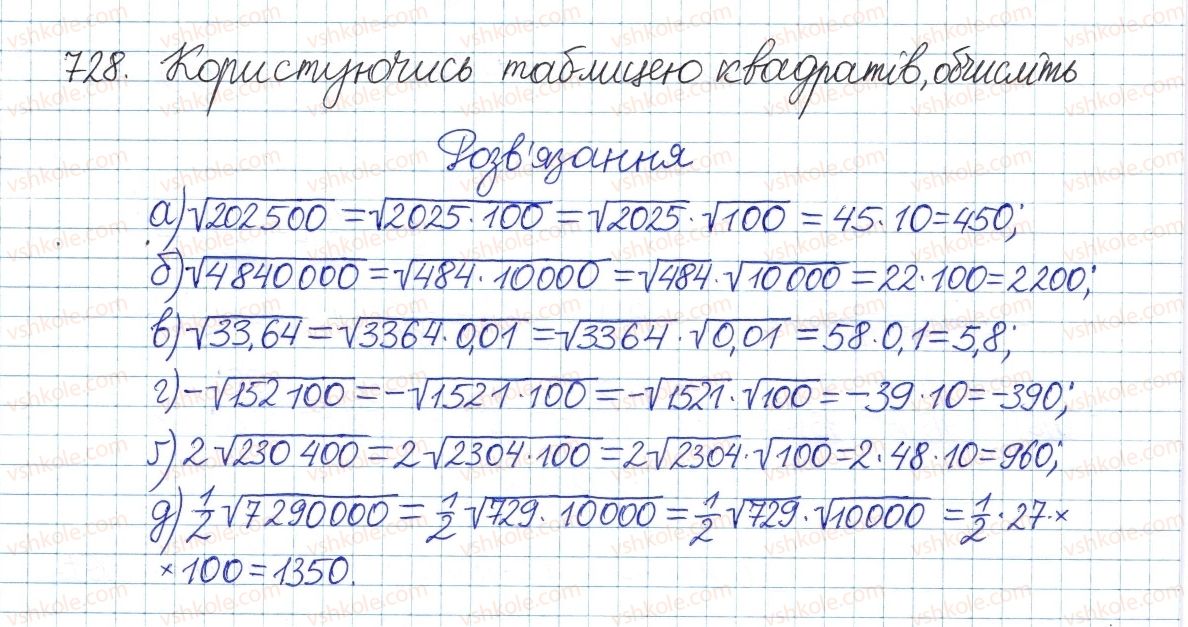 728. Користуючись таблицею квадратів, обчисліть
Розв'язання
а) √202500 = √2025·100 = √2025·√100 = 45·10=450;
б) √4840000 = √484·10000 = √484·√10000 = 22·100=2200;
в) √33,64 = √3364·0,01 = √3364·√0,01 = 58·0,1=5,8;
г) -√152100 = -√1521·100 = -√1521·√100 = -39·10=-390;
ґ) 2√230400 = 2√2304·100 = 2√2304·√100 = 2·48·10=960;
д) 1/2√7290000 = 1/2√729·10000 = 1/2√729·√10000 = 1/2·27·×
×100=1350.